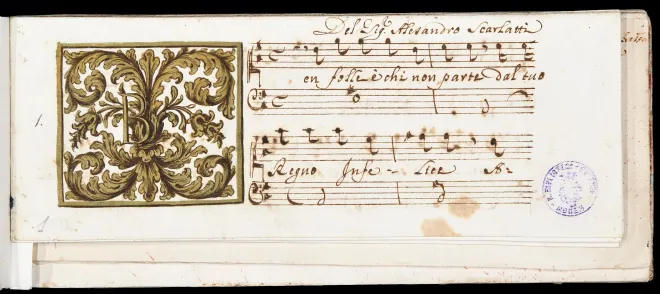 Del Sig. Alesandro Scarlatti
1.
B
en folle è chi non parte dal tuo
Regno Infe - lice A-
1